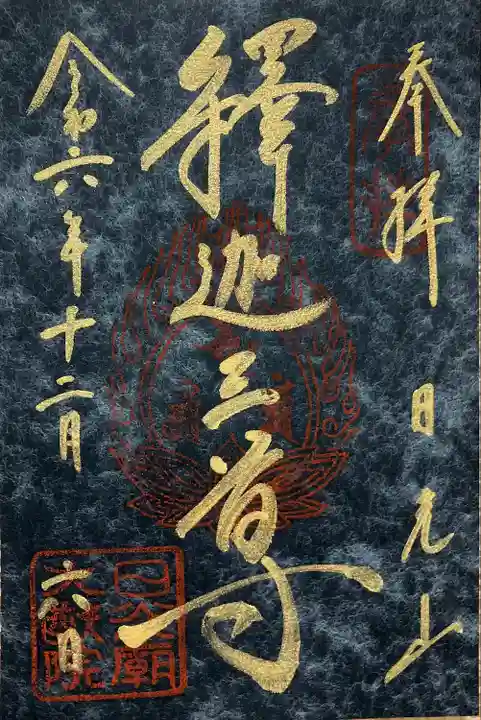 奉拝
日光山
釋迦三尊
令和六年十二月
六日
日光廟
大猷院